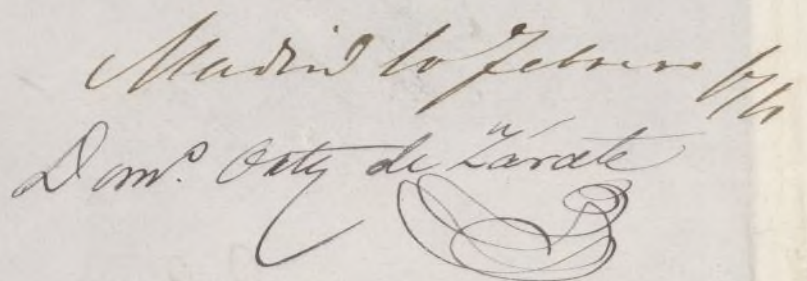 Madrid 10 Febrero
Domº. Ortiz de Zárate